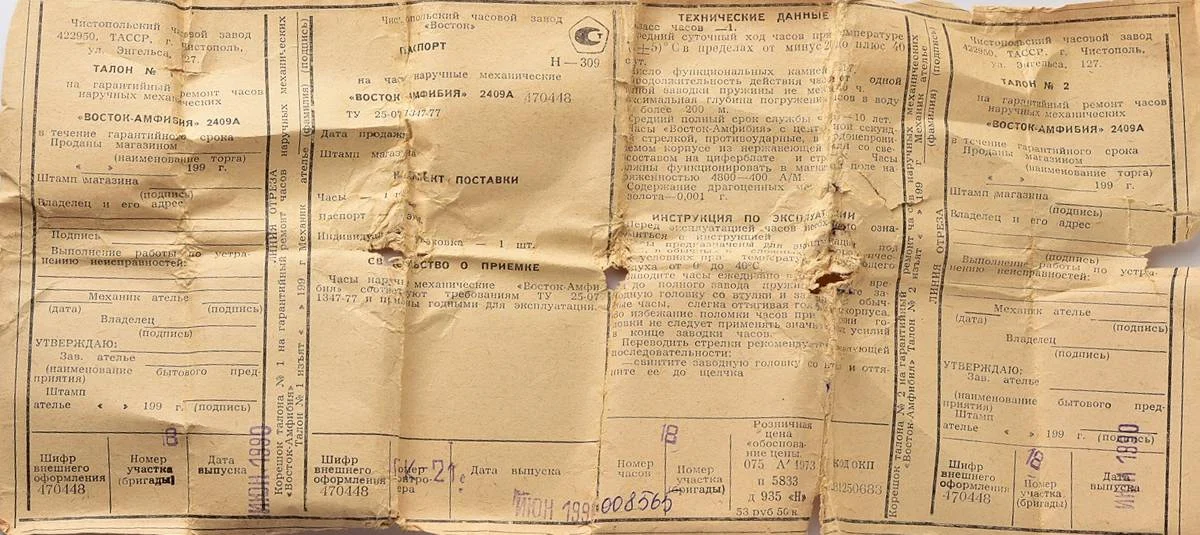 Чистопольский часовой завод
422950, ТАССР, г. Чистополь,
ул. Энгельса, 127.
ТАЛОН №
на гарантийный ремонт часов
наручных механических
«ВОСТОК-АМФИБИЯ» 2409А
в течение гарантийного срока
Проданы магазином
(наименование торга)
« » 199 г.
Штамп магазина
(подпись)
Владелец и его адрес
Подпись
Выполнение работы по устра-
нению неисправностей:
Механик ателье
(дата) (подпись)
Владелец
(подпись)
УТВЕРЖДАЮ:
Зав. ателье
(наименование бытового пред-
приятия)
Штамп
ателье « » 199 г. (подпись)
Шифр
внешнего
оформления
470448
18
Номер
участка
(бригады)
Дата
выпуска
ИЮН 1990
Корешок талона № 1 на гарантийный ремонт часов наручных механических
«Восток-Амфибия»
Талон № 1 изъят « » 199 г Механик ателье (фамилия) (подпись)
ЛИНИЯ ОТРЕЗА
Чистопольский часовой завод
«Восток»
ПАСПОРТ
Н — 309
на часы наручные механические
«ВОСТОК-АМФИБИЯ» 2409А 470448
ТУ 25-07 1347-77
Дата продажи
Штамп магазина
КОМПЛЕКТ ПОСТАВКИ
Часы
Паспорт
Индивидуальная упаковка — 1 шт.
СВИДЕТЕЛЬСТВО О ПРИЕМКЕ
Часы наручные механические «Восток-Амфи
бия» соответствуют требованиям ТУ 25-07
1347-77 и признаны годными для эксплуатации.
Шифр
внешнего
оформления
470448
Номер
контро-
лера
Дата выпуска
ИЮН 1990
ТЕХНИЧЕСКИЕ ДАННЫЕ
Класс часов —1.
Средний суточный ход часов при температуре
(20±5)°С в пределах от минус 20 до плюс 40
сут.
Число функциональных камней 17.
Продолжительность действия часов от одной
полной заводки пружины не менее ч.
Максимальная глубина погружения часов в воду
не более —200 м.
Средний полный срок службы —10 лет.
Часы «Восток-Амфибия» с центральной секунд-
ной стрелкой, противоударные, в водонепрони-
цаемом корпусе из нержавеющей со све-
составом на циферблате и стрелках Часы
должны функционировать в магнитном поле на-
пряженностью 4800—400 А/М.
Содержание драгоценных
золота—0,001 г.
ИНСТРУКЦИЯ ПО ЭКСПЛУАТАЦИИ
Перед эксплуатацией часов необходимо озна-
комиться с инструкцией
предназначены для эксплуатации под
условиях при температуре
воздуха от 0 до 40°С
Заводите часы ежедневно
до полного завода пружины
заводную головку со втулки и
ные часы, слегка оттягивая корпуса.
Во избежание поломки часов при
ловки не следует применять усилий
в конце заводки часов.
Переводить стрелки рекомендуется
последовательности:
—свинтите заводную головку со втулки и оття-
ните ее до щелчка
Номер
часов
008565
18
Номер
участка
(бригады)
Розничная
цена
«обоснова-
ние цены.
075 А' 1973
п 5833
д 935 «Н»
53 руб 50 к
КОД ОКП
4281250683
Корешок талона № 2 на гарантийный ремонт часов наручных механических
«Восток-Амфибия» Талон № 2 изъят « » 199 г Механик ателье
(фамилия) (подпись)
ЛИНИЯ ОТРЕЗА
Чистопольский часовой завод
422950, ТАССР, г. Чистополь,
ул. Энгельса, 127.
ТАЛОН № 2
на гарантийный ремонт часов
наручных механических
«ВОСТОК-АМФИБИЯ» 2409А
в течение гарантийного срока
Проданы магазином
(наименование торга)
« » 199 г.
Штамп магазина
(подпись)
Владелец и его адрес
(подпись)
Выполнение работы по устра-
нению неисправностей:
Механик ателье
(дата) (подпись)
Владелец
(подпись)
УТВЕРЖДАЮ:
Зав. ателье
(наименование бытового пред-
приятия)
Штамп
ателье « » 199 г. (подпись)
Шифр
внешнего
оформления
470448
18
Номер
участка
(бригады)
Дата
выпуска
ИЮН 1990